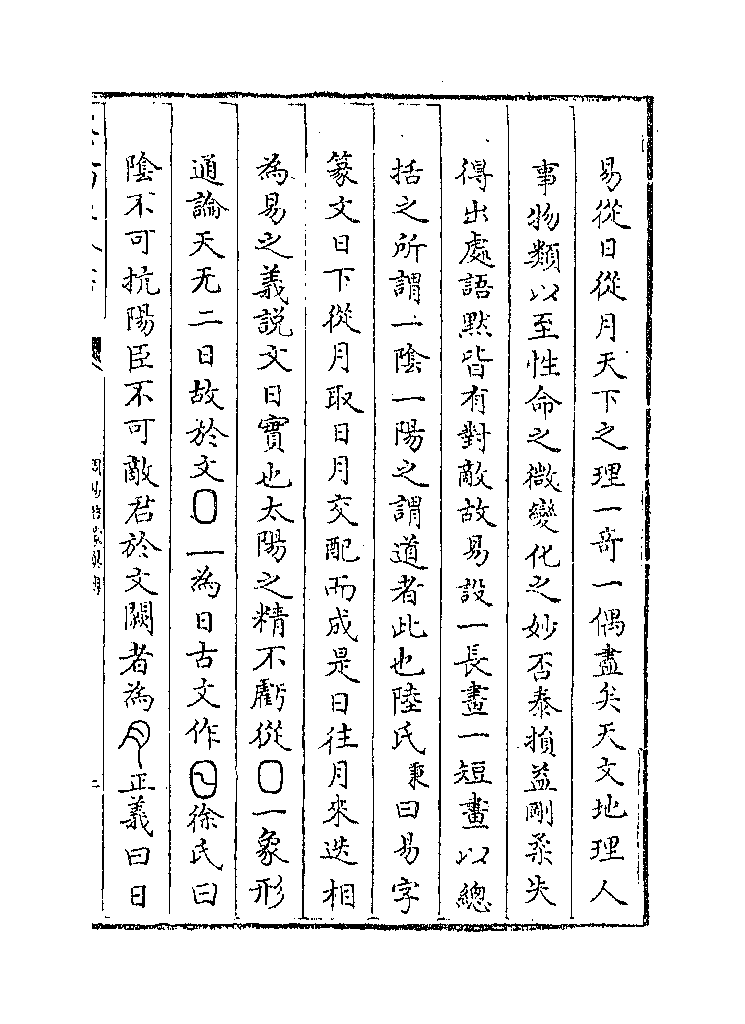 易從日從月天下之理一竒一偶盡矣天文地理人
事物類以至性命之微變化之妙否泰損益剛柔失
得出處語黙皆有對敵故易設一長畫一短畫以總
括之所謂一陰一陽之謂道者此也陸氏秉曰易字
篆文日下從月取日月交配而成是日往月來迭相
為易之義説文日實也太陽之精不虧從囗一象形
通論天无二日故於文囗一為日古文作徐氏曰
陰不可抗陽臣不可敵君於文闕者為正義曰日